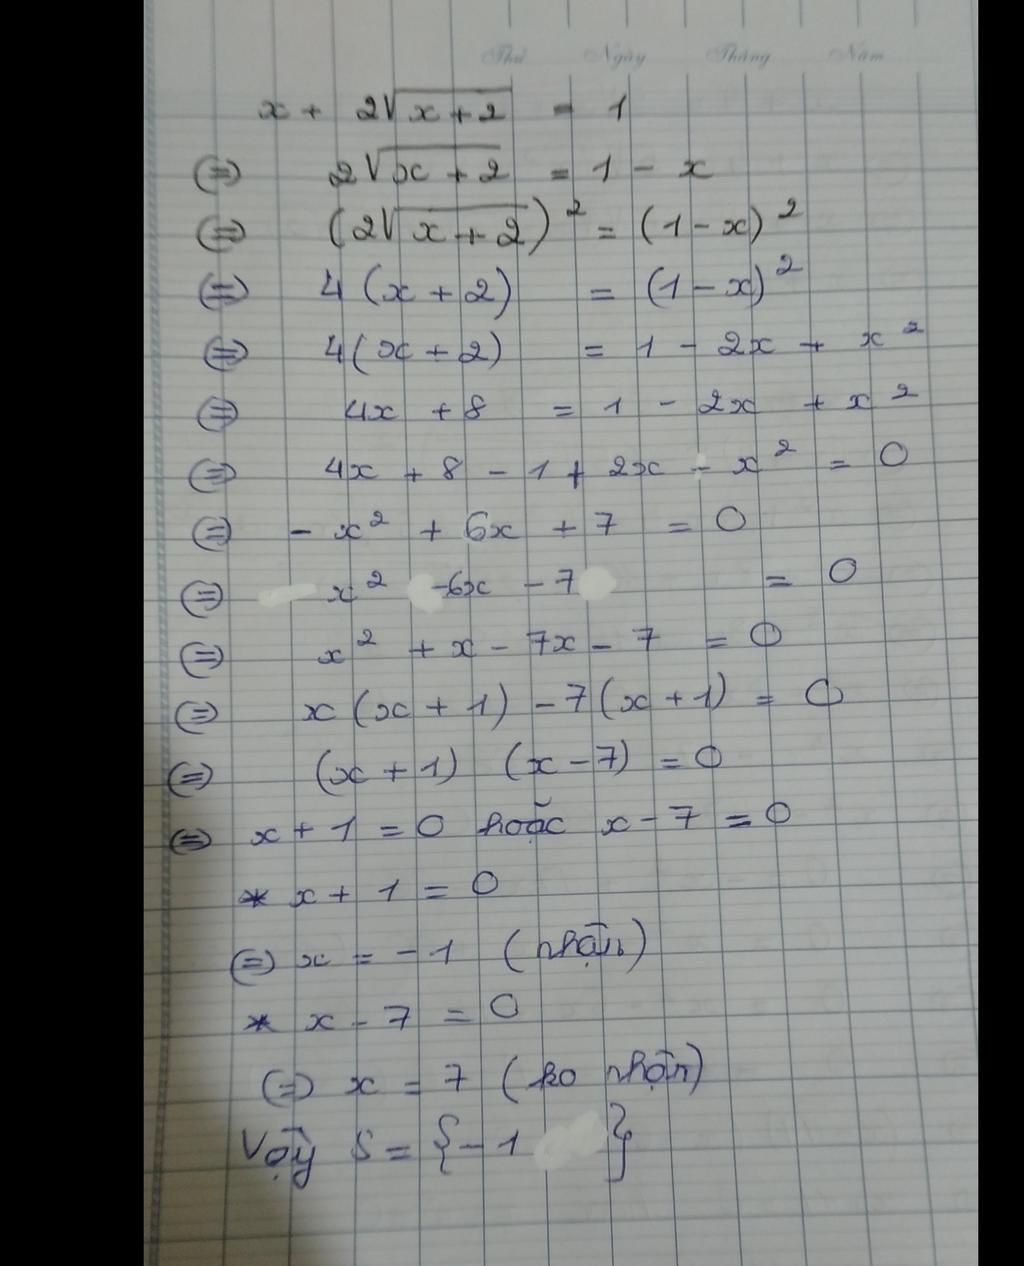 Thứ Ngày Tháng Năm
x + 2√(x + 2) = 1
(=) 2√(x + 2) = 1 - x
(=) (2√(x + 2))² = (1 - x)²
(=) 4(x + 2) = (1 - x)²
(=) 4(x + 2) = 1 - 2x + x²
(=) 4x + 8 = 1 - 2x + x²
(=) 4x + 8 - 1 + 2x - x² = 0
(=) - x² + 6x + 7 = 0
(=) x² - 6x - 7 = 0
(=) x² + x - 7x - 7 = 0
(=) x(x + 1) - 7(x + 1) = 0
(=) (x + 1) (x - 7) = 0
(=) x + 1 = 0 hoặc x - 7 = 0
* x + 1 = 0
(=) x = - 1 (nhận)
* x - 7 = 0
(=) x = 7 (ko nhận)
Vậy S = {- 1 }